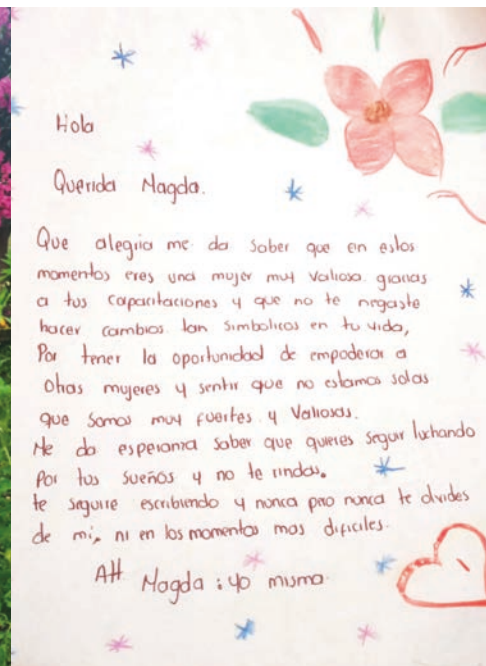 Hola
Querida Magda.
Que alegria me da saber que en estos
momentos eres una mujer muy valiosa gracias
a tus capacitaciones y que no te negaste
hacer cambios tan simbolicos en tu vida,
Por tener la oportunidad de empoderar a
otras mujeres y sentir que no estamos solas
que somos muy fuertes y Valiosas.
Me da esperanza saber que quieres seguir luchando
Por tus sueños y no te rindas.
te seguire escribiendo y nunca pero nunca te olvides
de mi, ni en los momentos mas dificiles.
Att Magda: yo misma.